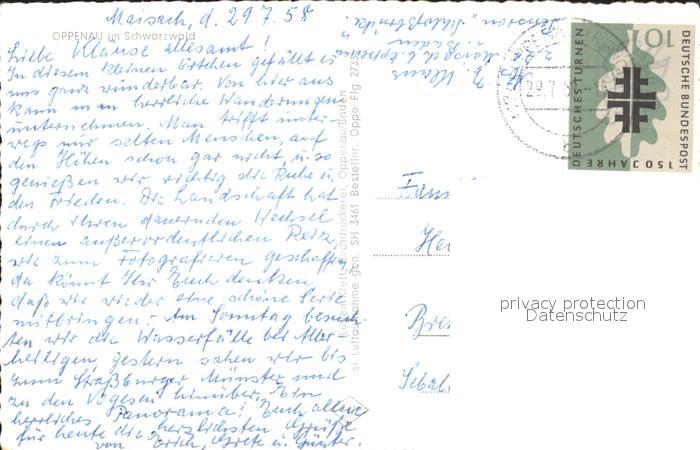 Maisach, d. 29.7.58
OPPENAU im Schwarzwald
Liebe Klause allesamt!
In diesem kleinen Örtchen gefällt es
uns ganz wunderbar. Von hier aus
kann man herrliche Wanderungen
unternehmen. Man trifft unter-
wegs nur selten Menschen, auf
den Höhen schon gar nicht, u. so
genießen wir richtig die Ruhe u.
den Frieden. Die Landschaft hat
durch ihren dauernden Wechsel
einen außerordentlichen Reiz,
wie zum Fotografieren geschaffen,
da könnt Ihr Euch denken,
daß wir wieder eine schöne Serie
mitbringen - Am Sonntag besuch-
ten wir die Wasserfälle bei Aller-
heiligen, gestern sahen wir bis
zum Straßburger Münster und
zu den Vogesen hinüber. Ein
herrliches Panorama! Euch allen
für heute die herzlichsten Grüße
von Erich, Grete u. Günter.
Pension "Schloßbrücke"
Klaus
Luftaufnahme gen. SH 3461 Bestellnr. Oppe Flg
Oppenau/Baden
Fam
He
Bre
Sebal
29.7.58
150 JAHRE
DEUTSCHES TURNEN
DEUTSCHE BUNDESPOST
10
privacy protection
Datenschutz